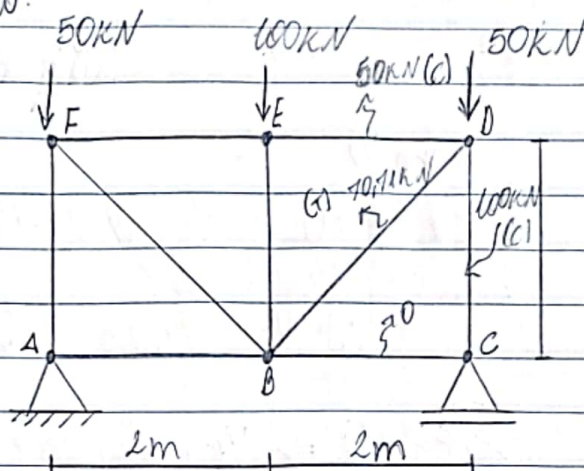 50KN 100KN 50KN
50KN (C)
F E D
(T) 70,71KN
100KN
(C)
0
A B C
2m 2m